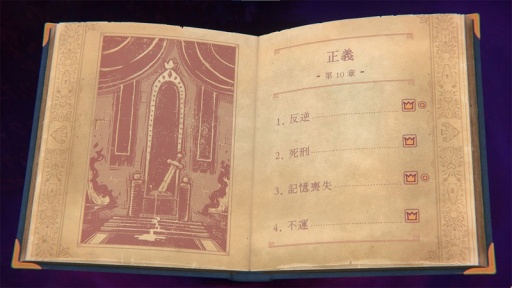 正義
- 第 10 章 -
1. 反逆
2. 死刑
3. 記憶喪失
4. 不運